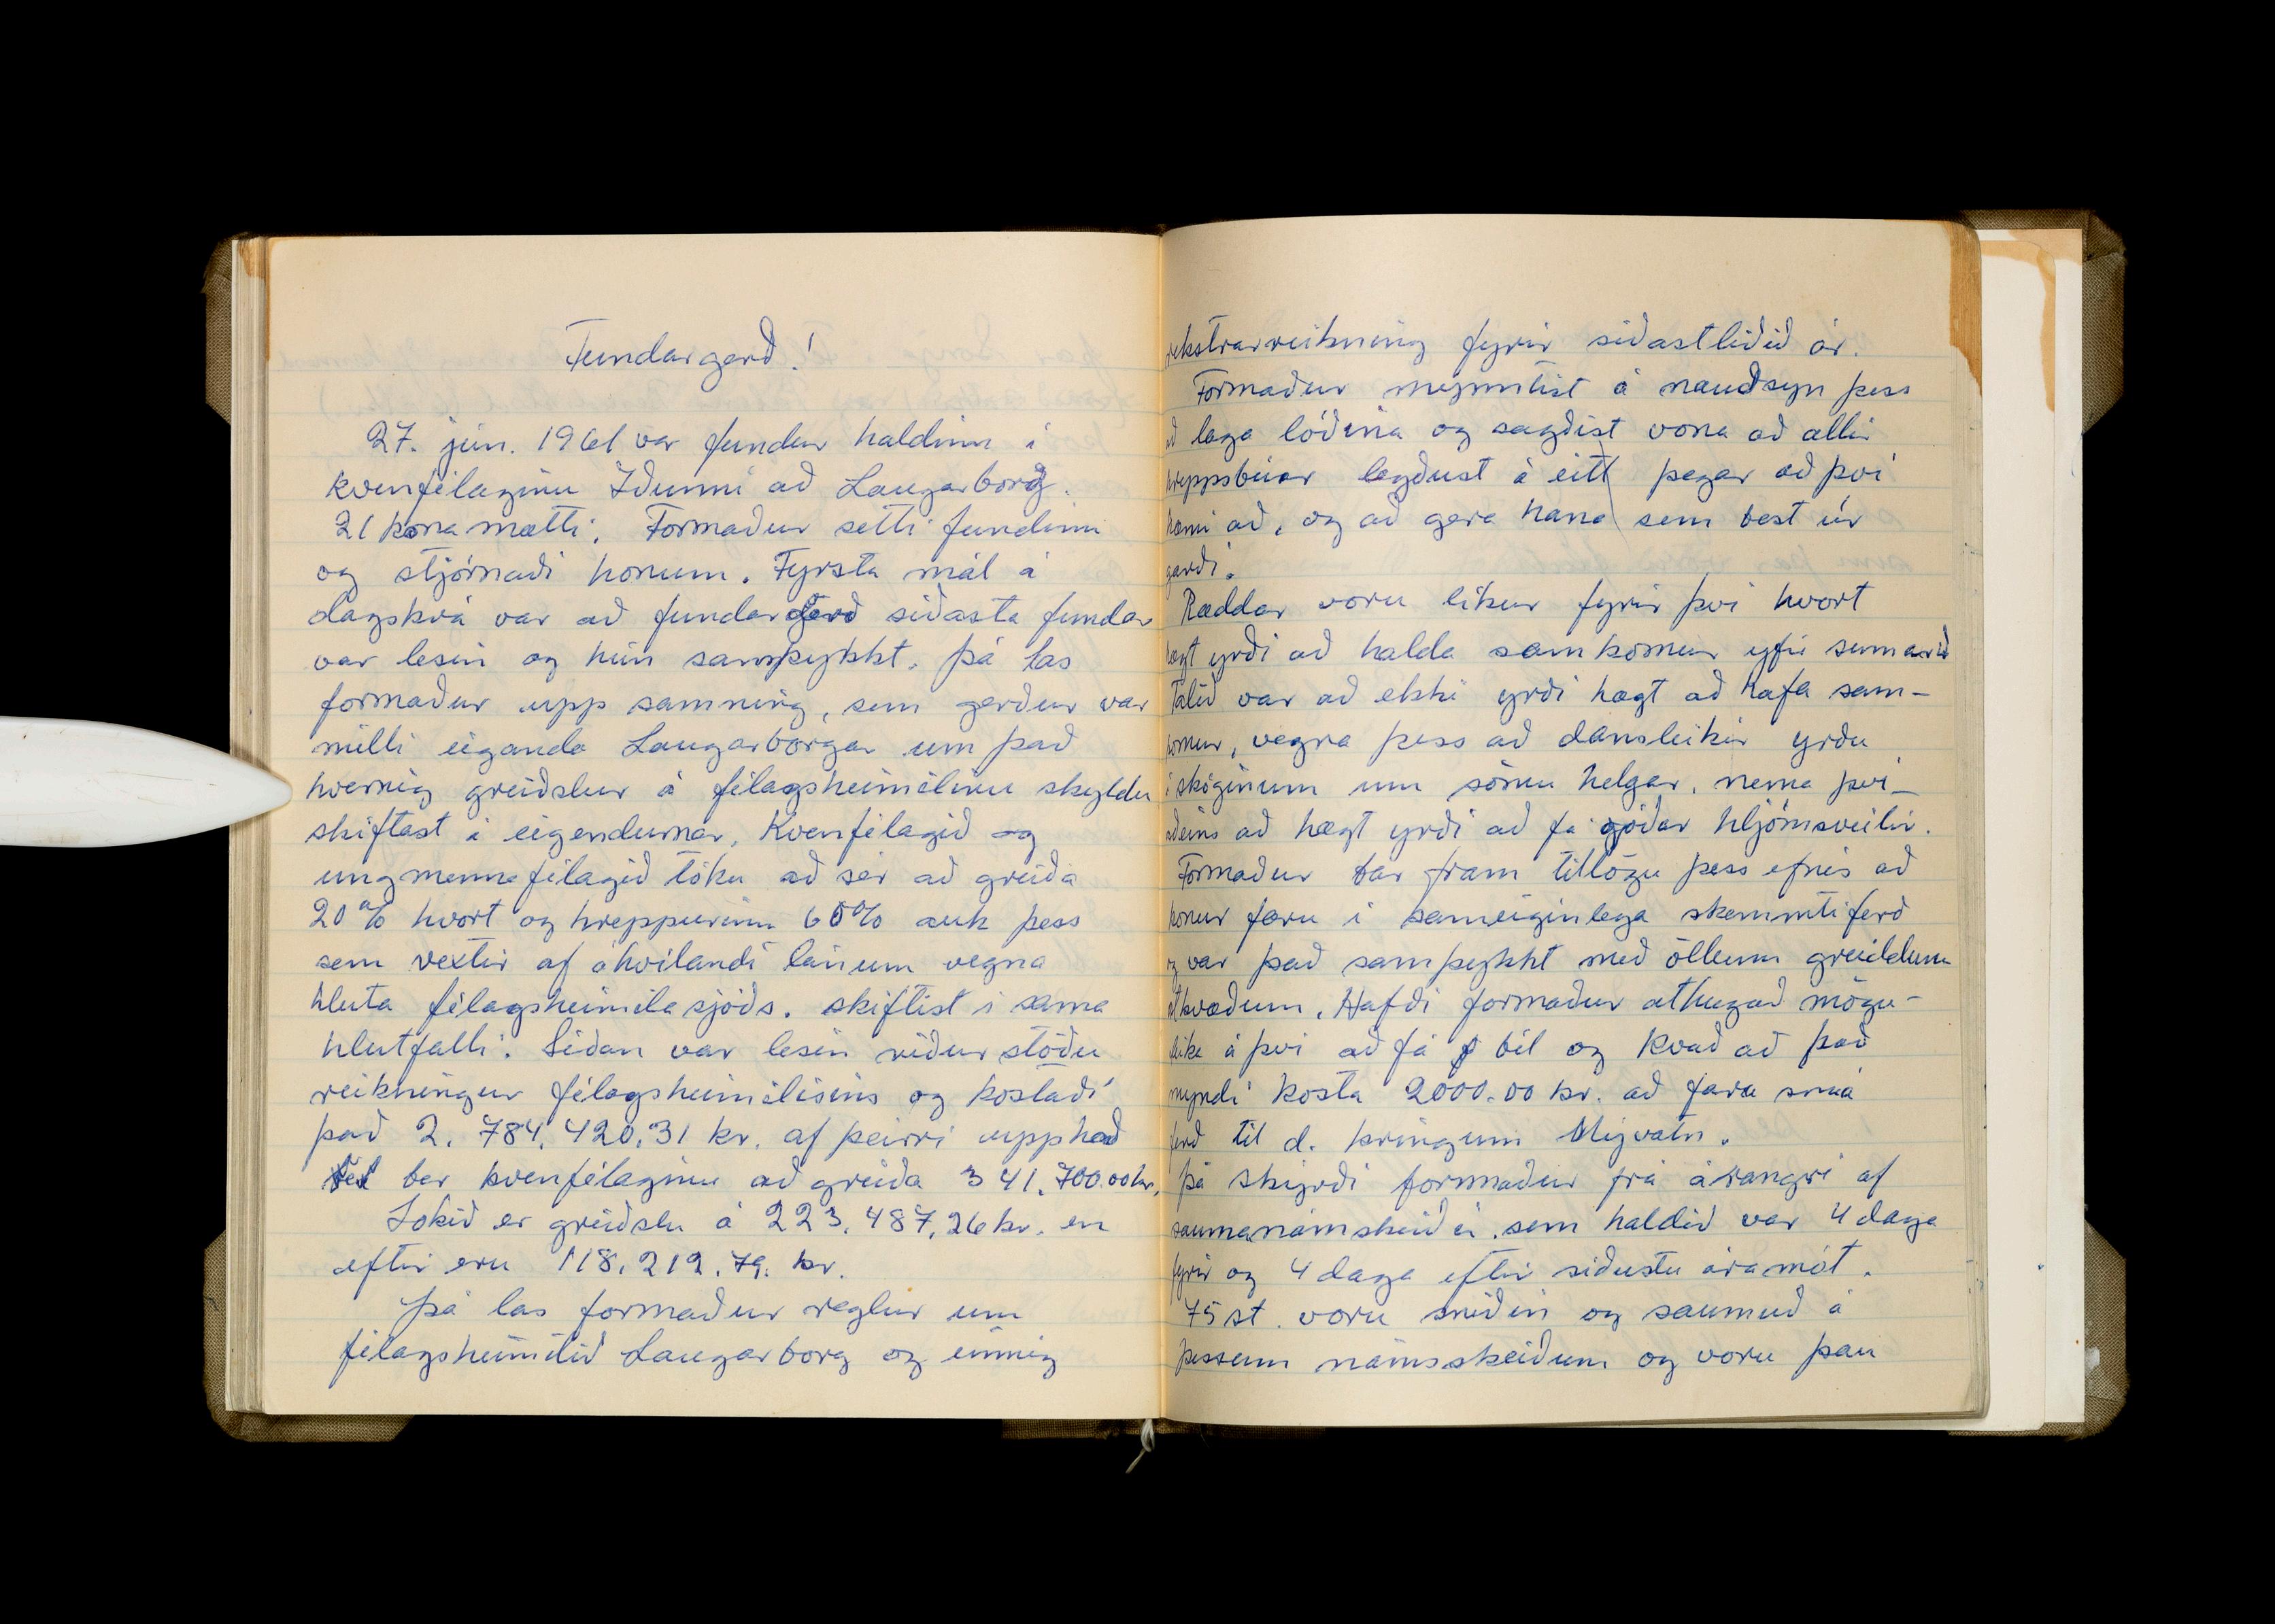 Fundargerð!
27. jún. 1961 var fundur haldinn í
kvenfélaginu Iðunni að Laugarborg.
21 kona mætti. Formaður setti fundinn
og stjórnaði honum. Fyrsta mál á
dagskrá var að fundargerð síðasta fundar
var lesin og hún samþykkt. Þá las
formaður upp samning, sem gerður var
milli eiganda Laugarborgar um það
hvernig greiðslur á félagsheimilinu skyldu
skiftast í eigendurnar. Kvenfélagið og
ungmennafélagið tóku að sér að greiða
20% hvort og hreppurinn 60% auk þess
sem vextir af áhvílandi lánum vegna
hluta félagsheimilasjóðs. skiftist í sama
hlutfalli. Síðan var lesin niðurstöðu
reikningur félagsheimilisins og kostaði
það 2. 784. 420,31 kr. af þeirri upphæð
ber kvenfélaginu að greiða 341.700.00 kr.
Lokið er greiðslu á 223.487,26 kr. en
eftir eru 118.212.79. kr.
Þá las formaður reglur um
félagsheimilið Laugarborg og einnig
rekstrarreikning fyrir síðastliðið ár.
Formaður mynntist á nauðsyn þess
að laga lóðina og sagðist vona að allir
hreppsbúar legðust á eitt þegar að því
kæmi að, og að gera hana sem best úr
garði.
Ræddar voru líkur fyrir því hvort
hægt yrði að halda samkomur yfir sumarið
Talið var að ekki yrði hægt að hafa sam-
komur, vegna þess að dansleikir yrðu
í skóginum um sömu helgar, nema því-
aðeins að hægt yrði að fá góðar hljómsveitir.
Formaður bar fram tillögu þess efnis að
konur færu í sameiginlega skemmtiferð
og var það samþykkt með öllum greiddum
atkvæðum. Hafði formaður athugað mögu-
leika á því að fá bíl og kvað að það
myndi kosta 2000.00 kr. að fara smá
ferð til d. kringum Mývatn.
Þá skýrði formaður frá árangri af
saumanámskeiði, sem haldið var 4 daga
fyrir og 4 daga eftir síðustu áramót.
75 st. voru sniðin og saumuð á
þessum námsskeiðum og voru þau